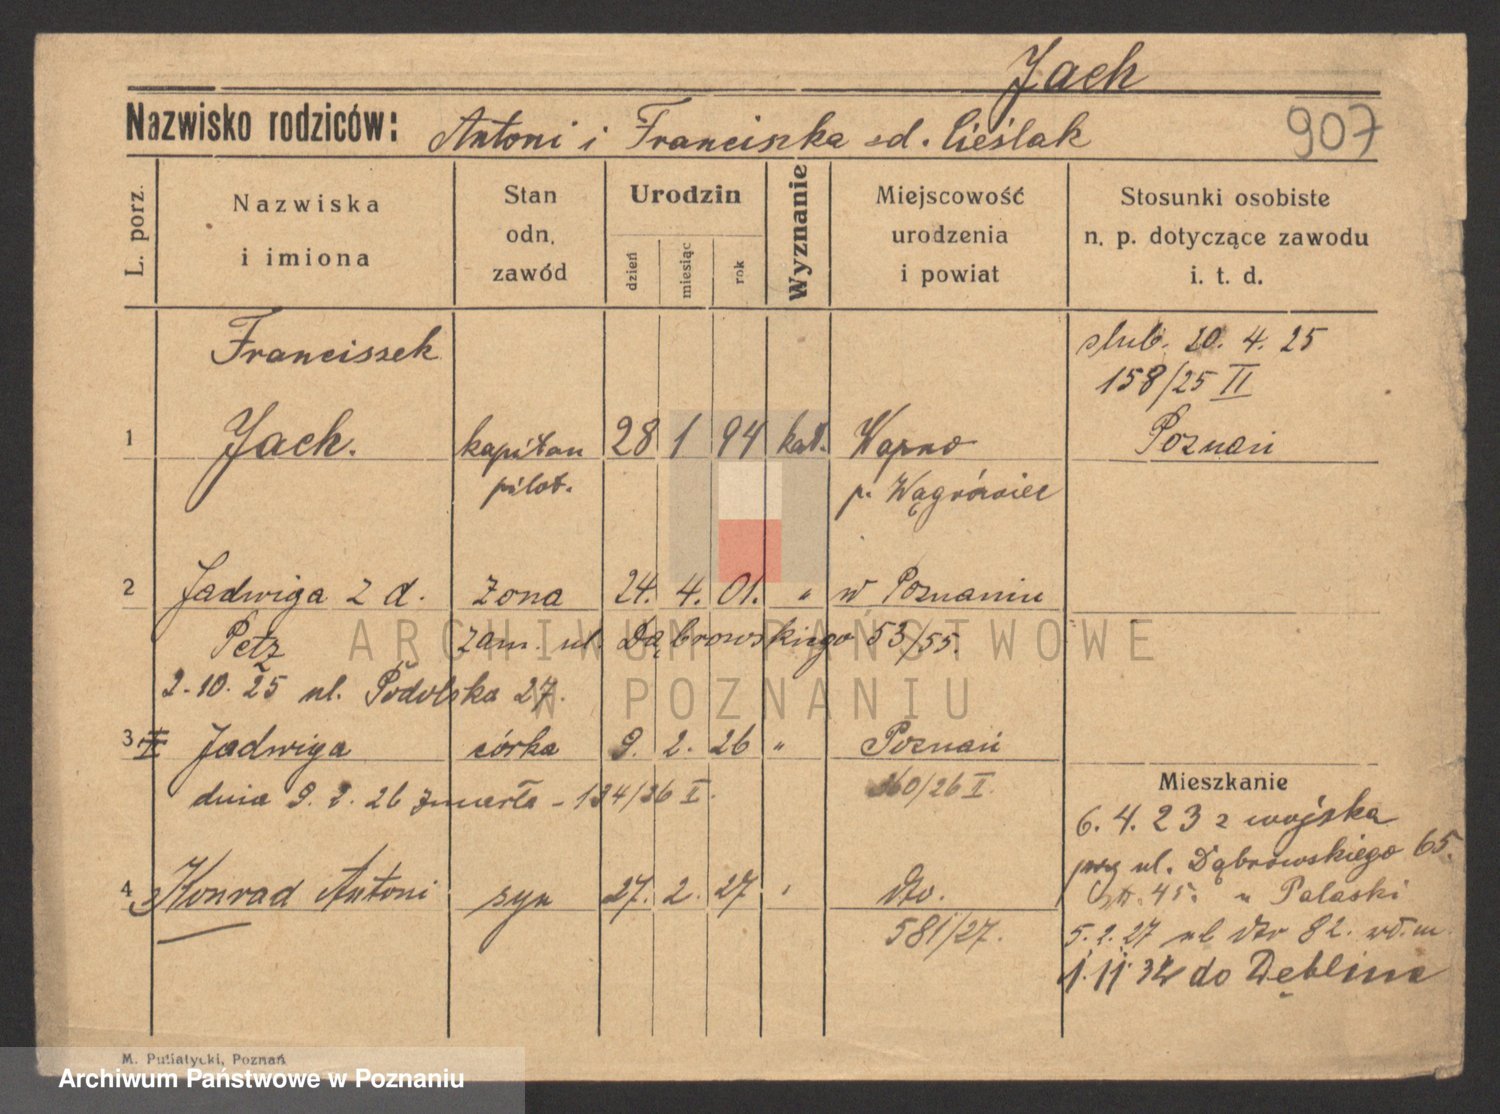 Jach
Nazwisko rodziców: Antoni i Franciszka zd. Cieślak
907
L. porz.
Nazwiska
i imiona
Stan
odn.
zawód
Urodzin
dzień
miesiąc
rok
Wyznanie
Miejscowość
urodzenia
i powiat
Stosunki osobiste
n. p. dotyczące zawodu
i. t. d.
Franciszek ślub. 20. 4. 25
158/25 II
1 Jach. kapitan 28 1 94 kat. Wapno Poznań
pilot. p. Wągrówiec
2 Jadwiga z d. żona 24. 4. 01. " w Poznaniu
Petz zam. ul. Dąbrowskiego 53/55.
2.10. 25 ul. Podolska 27.
3 Jadwiga córka 9. 2. 26 " Poznań
dnia 9. 2. 26 zmarła - 134/26 I. 260/26 I.
Mieszkanie
6. 4. 23 z wojska
ul. Dąbrowskiego 65.
4 Konrad Antoni syn 27. 2. 27 " dto.
45. u Palaski
581/27.
5. 2. 27 ul dto 82. wł. m.
1. 11. 32 do Dęblina
M. Putiatycki, Poznań
ARCHIWUM PAŃSTWOWE
W POZNANIU
Archiwum Państwowe w Poznaniu